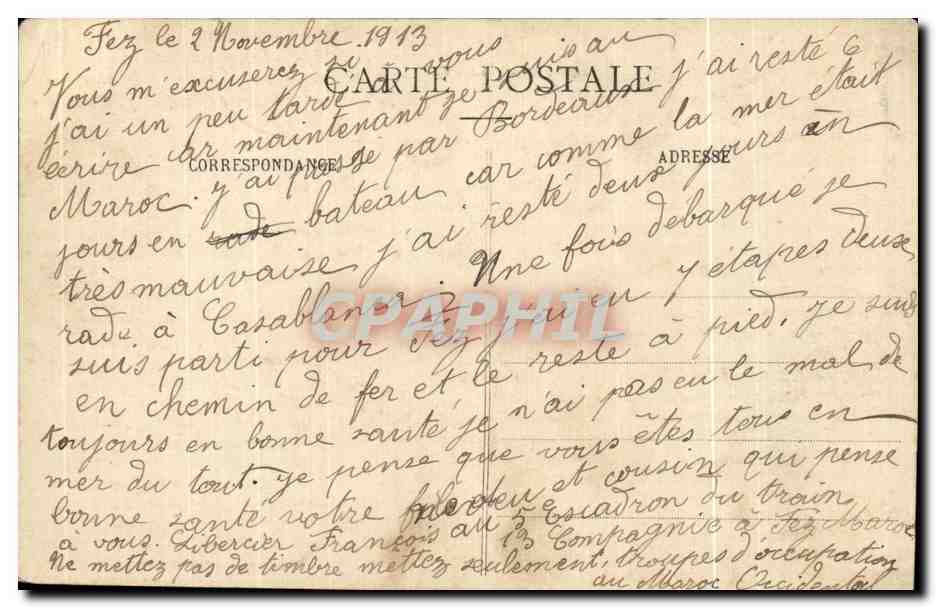 Fez le 2 Novembre 1913
Vous m'excuserez si
CARTE POSTALE
j'ai un peu tardé a vous
écrire car maintenant je suis au
CORRESPONDANCE
ADRESSE
Maroc. j'ai passé par Bordeaux j'ai resté 6
jours en rade bateau car comme la mer était
très mauvaise j'ai resté deux jours en
rade à Casablanca. Une fois debarqué je
suis parti pour Fez j'ai eu 7 étapes deuse
en chemin de fer et le reste à pied. je suis
toujours en bonne santé je n'ai pas eu le mal de
mer du tout. je pense que vous êtes tous en
bonne santé votre neveu et cousin qui pense
à vous. Libercier François au 5e Escadron du train
13 Compagnie à Fez Maroc
Ne mettez pas de timbre mettez seulement, troupes d'occupation
au Maroc Occidental
CPAPHIL